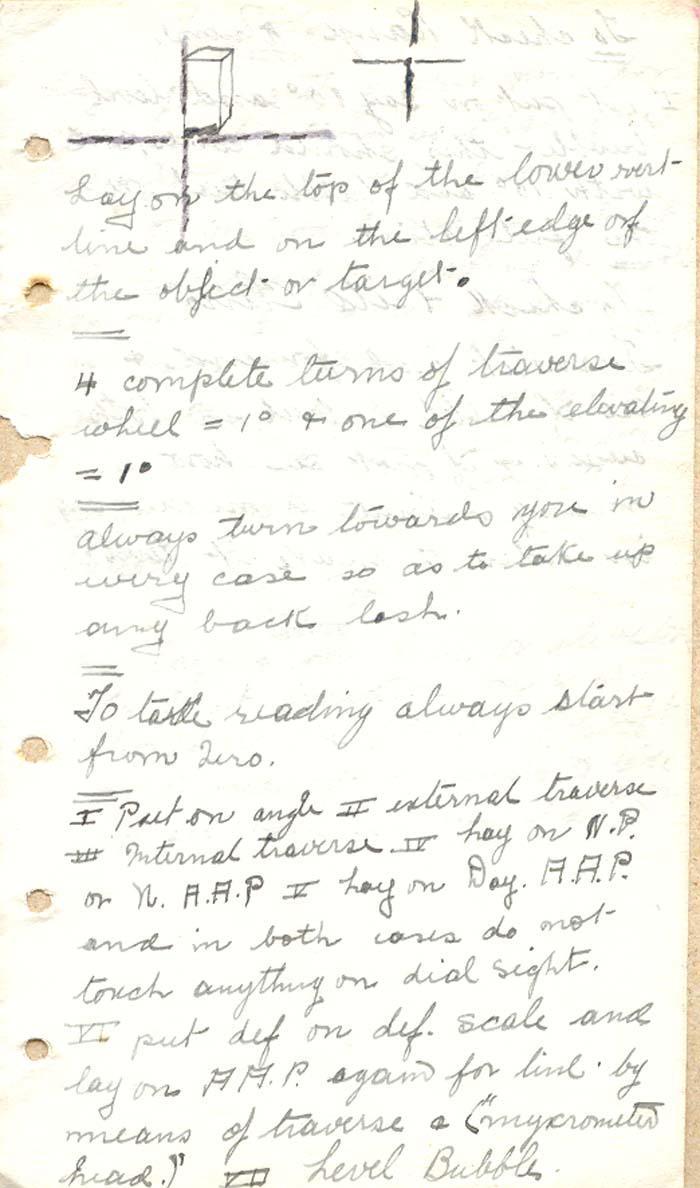 Lay on the top of the lower vert-
line and on the left edge of
the object or target.
4 complete turns of traverse
wheel = 1° & one of the elevating
= 1°
always turn towards you in
every case so as to take up
any back lash.
To take reading always start
from Zero.
I Put on angle II external traverse
III Internal traverse. IV Lay on N.P.
or N. A.A.P V Lay on Day. A.A.P.
and in both cases do not
touch anything on dial sight.
VI put def on def. scale and
lay on A.A.P. again for line by
means of traverse a ("mycrometer
head.)" VII Level Bubble.